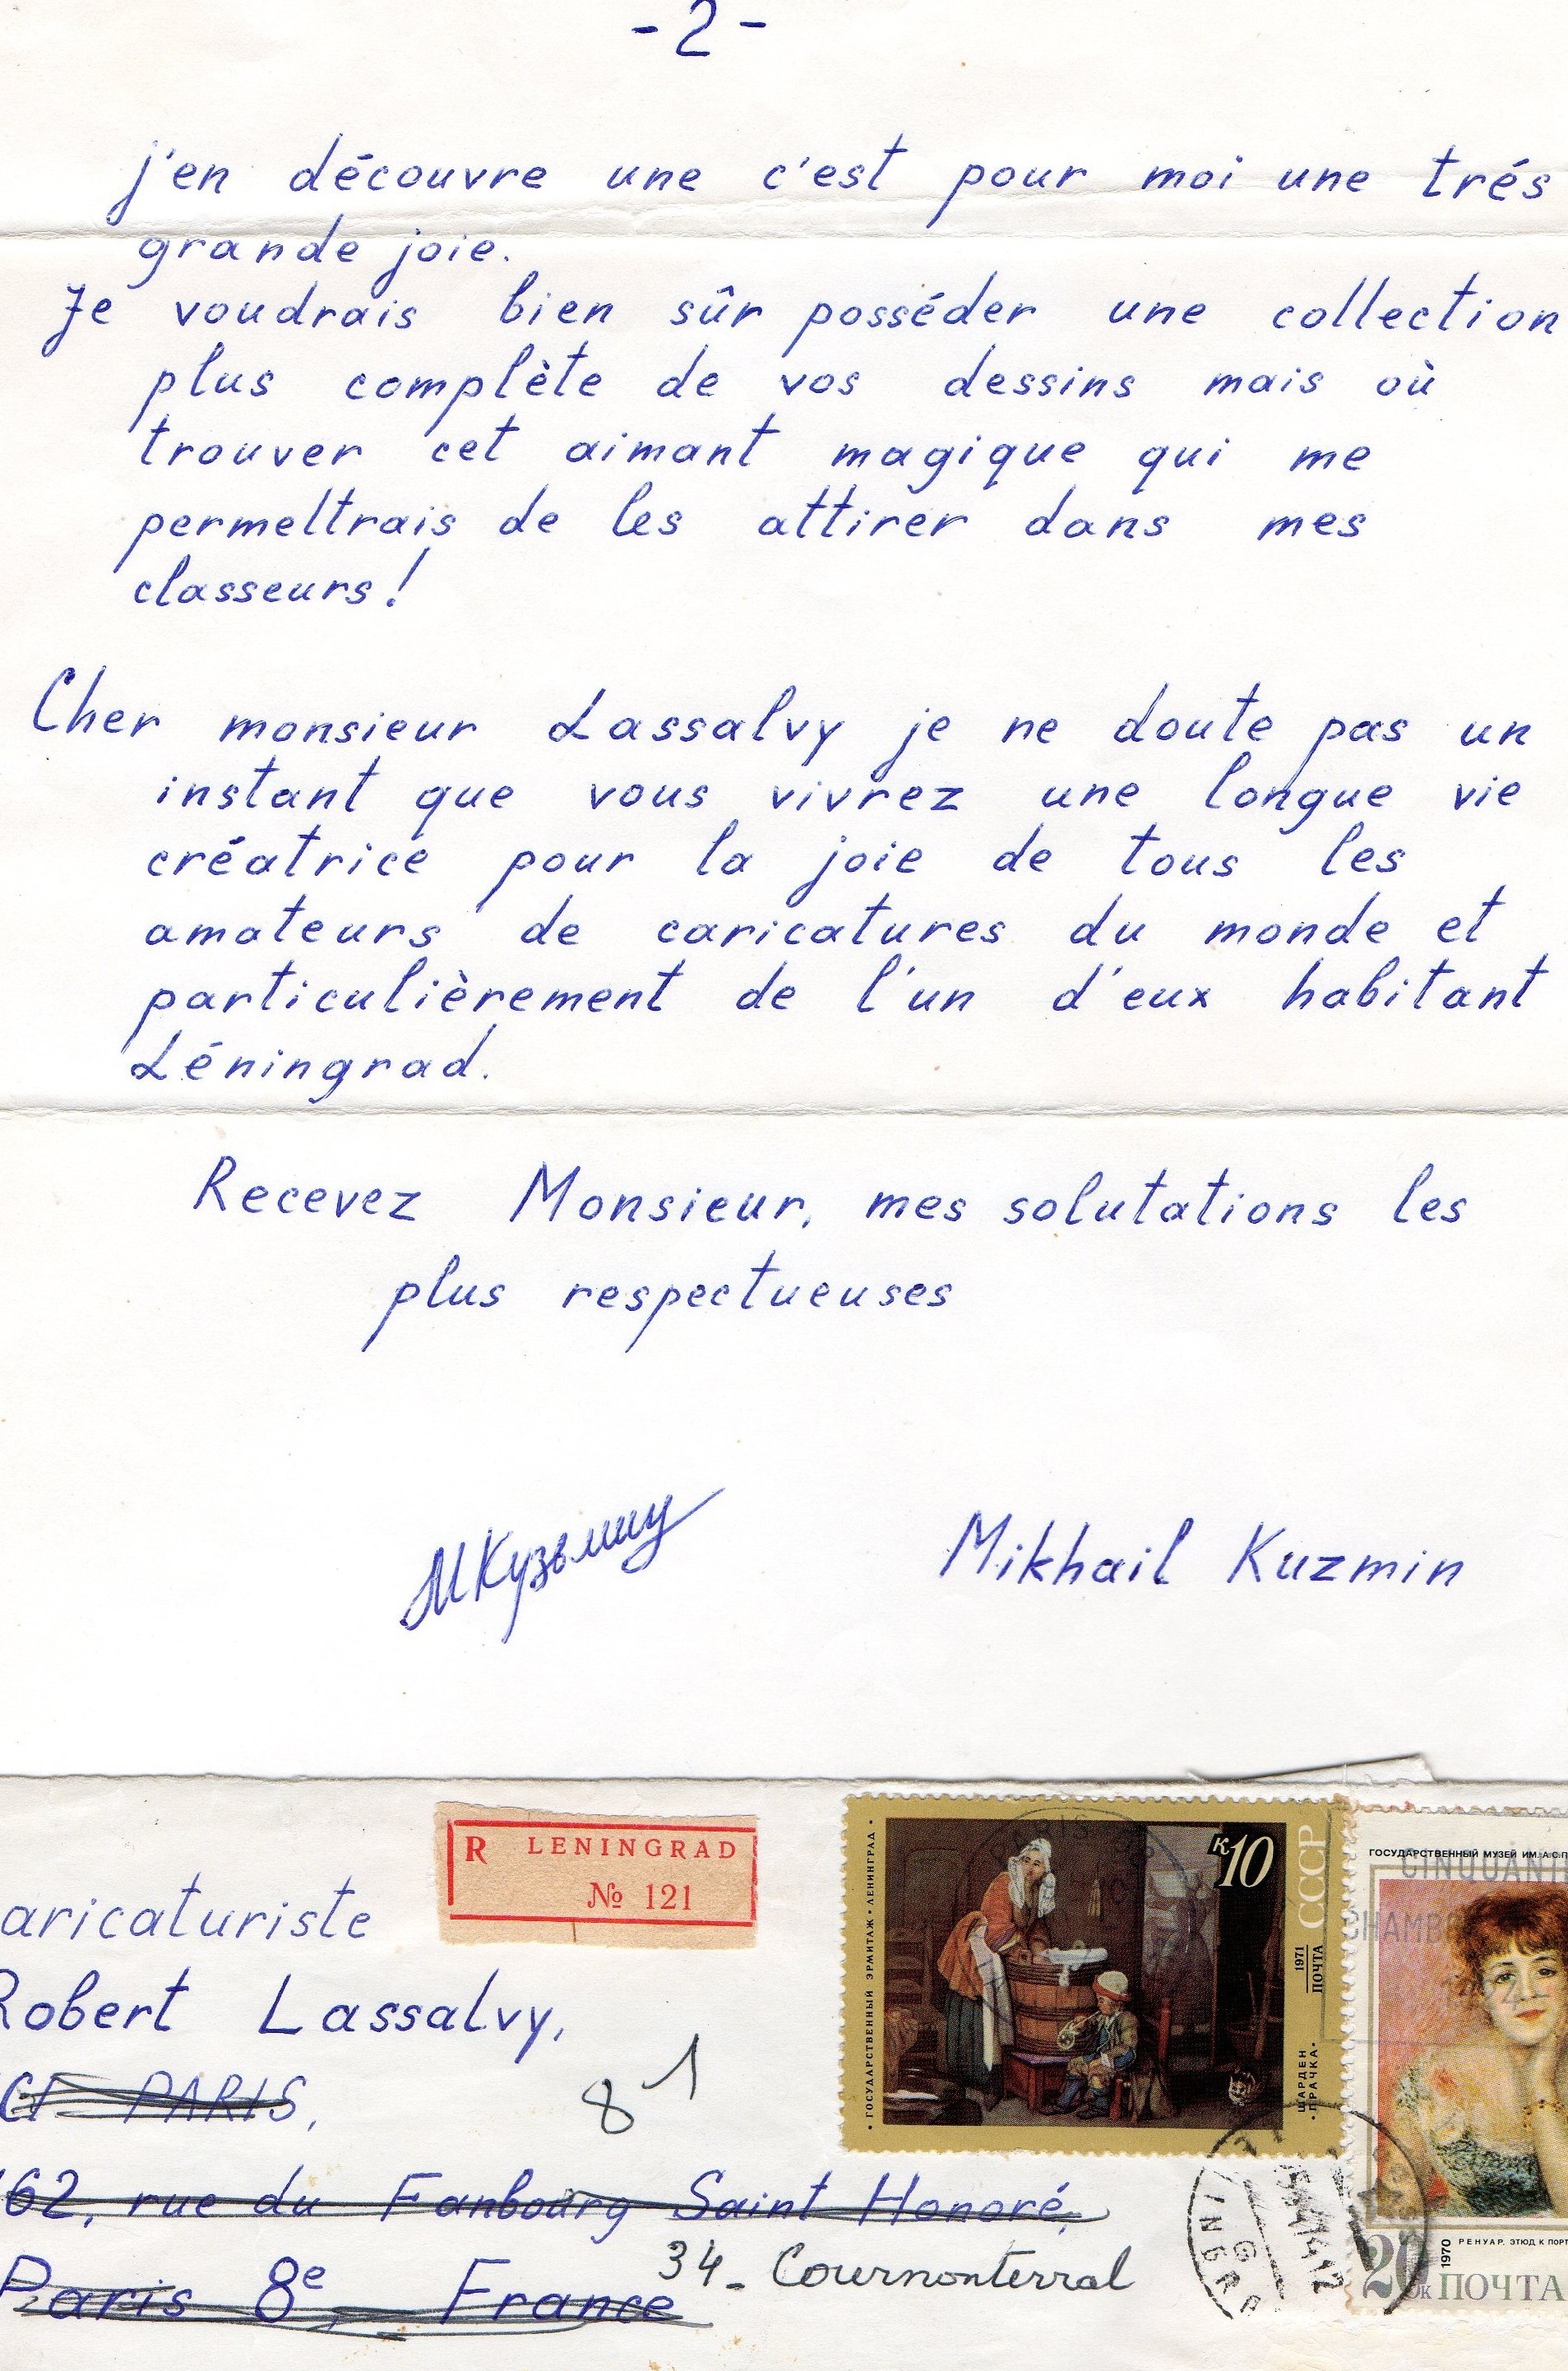 - 2 -
j'en découvre une c'est pour moi une trés
grande joie.
Je voudrais bien sûr posséder une collection
plus complète de vos dessins mais où
trouver cet aimant magique qui me
permettrais de les attirer dans mes
classeurs!
Cher monsieur Lassalvy je ne doute pas un
instant que vous vivrez une longue vie
créatrice pour la joie de tous les
amateurs de caricatures du monde et
particulièrement de l'un d'eux habitant
Léningrad.
Recevez Monsieur, mes solutations les
plus respectueuses
МКузьмин
Mikhail Kuzmin
R LENINGRAD
№ 121
aricaturiste
Robert Lassalvy,
PARIS,
81
62, rue du Fanbourg Saint Honoré,
Paris 8e, France
34_ Cournonterral
• ГОСУДАРСТВЕННЫЙ ЭРМИТАЖ • ЛЕНИНГРАД •
К10
СССР
1971
ПОЧТА
ШАРДЕН
•ПРАЧКА•
ГОСУДАРСТВЕННЫЙ МУЗЕЙ ИМ. А.С.П
CINQUANT
CHAMB
1970
РЕНУАР. ЭТЮД К ПОРТ
20к ПОЧТА